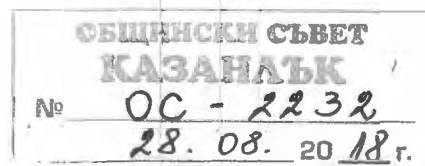 ОБЩИНСКИ СЪВЕТ
КАЗАНЛЪК
№ ОС - 2232
28. 08. 2018 г.